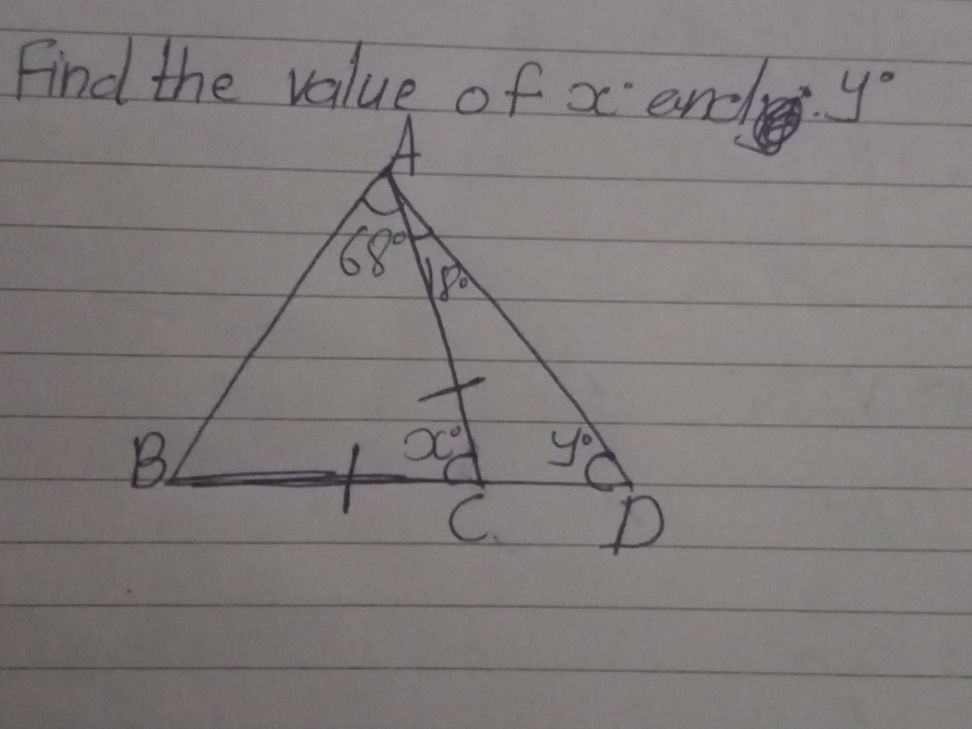 Find the value of x° and y°
A
68°
18°
B
x°
y°
C.
D